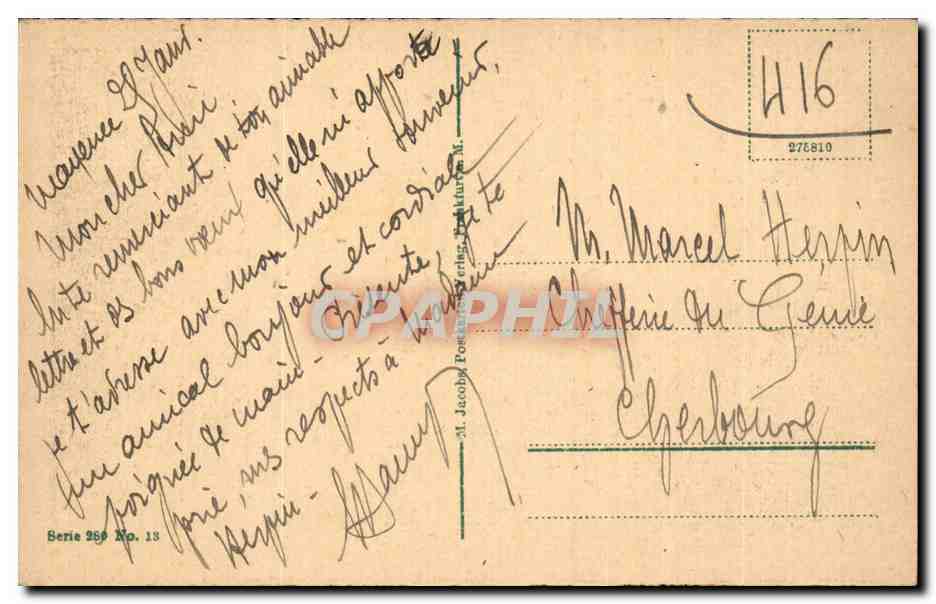 Mayence 8 Janv.
Mon cher
En te remerciant de ton aimable
lettre et des bons voeux qu'elle m'apporte
je t'adresse avec mon meilleur souvenir,
un amical bonjour et cordiale
poignée de main. Présente, je te
prie, mes respects à Madame
Herpin.
M. Jacobs, Postkarten-Verlag, Frankfurt a. M.
Serie 250 No. 13
416
275810
M. Marcel Herpin
Chefferie du Génie
Cherbourg
CPAPHIL